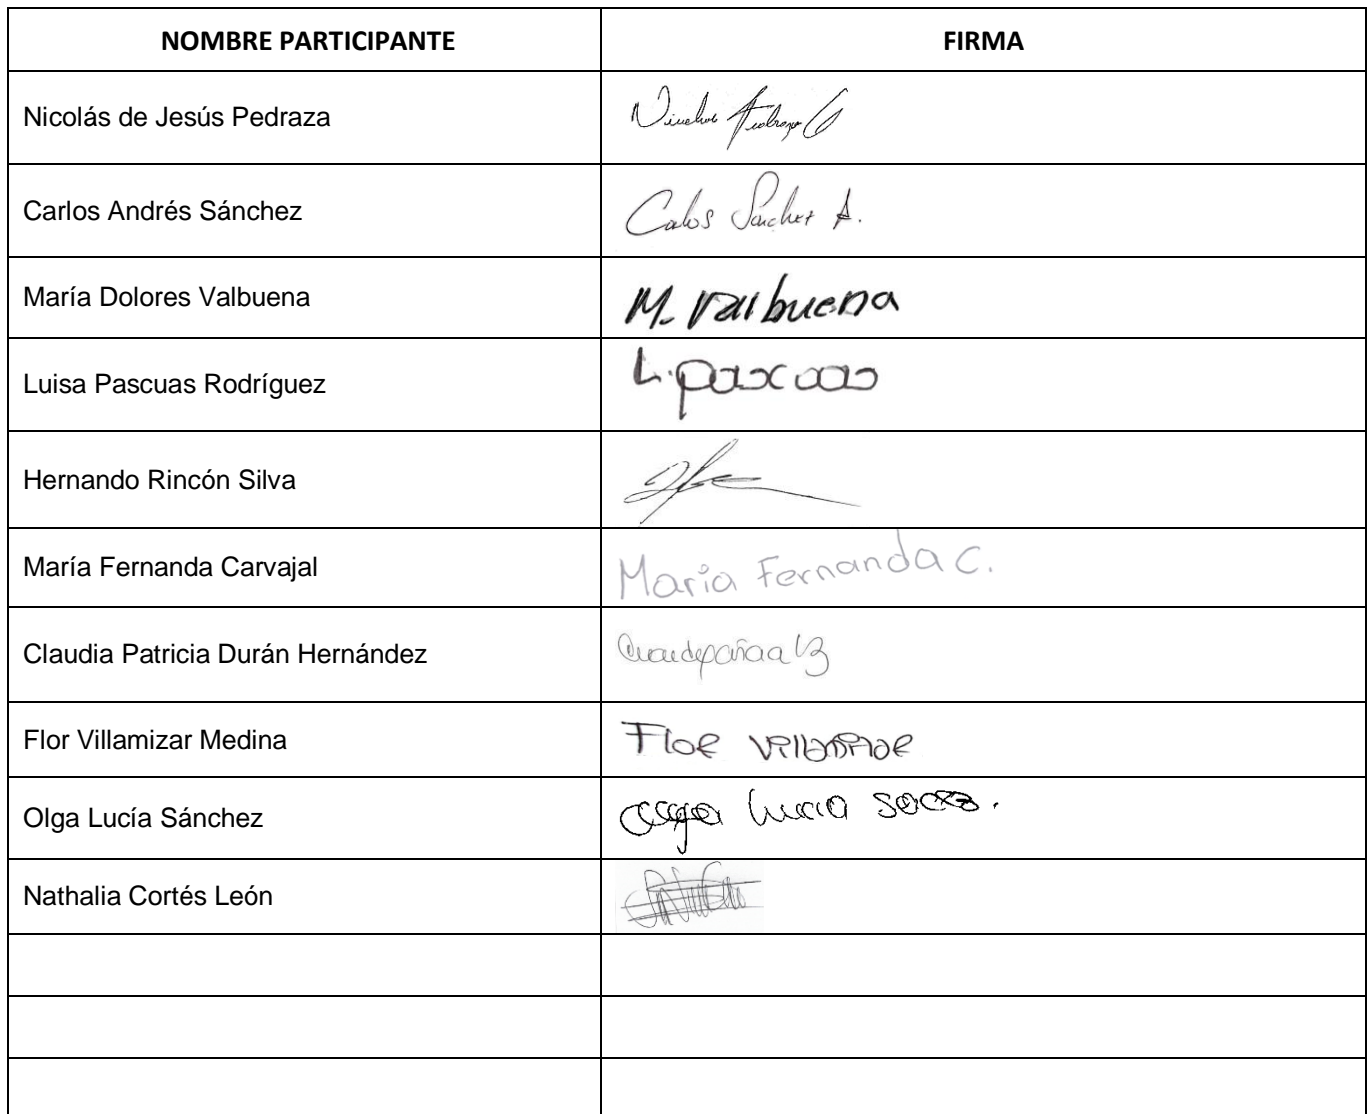 NOMBRE PARTICIPANTE FIRMA
Nicolás de Jesús Pedraza
Carlos Andrés Sánchez Calos Sanchez A.
María Dolores Valbuena M. Valbuena
Luisa Pascuas Rodríguez L. pascuas
Hernando Rincón Silva
María Fernanda Carvajal María Fernanda C.
Claudia Patricia Durán Hernández
Flor Villamizar Medina Flor
Olga Lucía Sánchez Lucia
Nathalia Cortés León